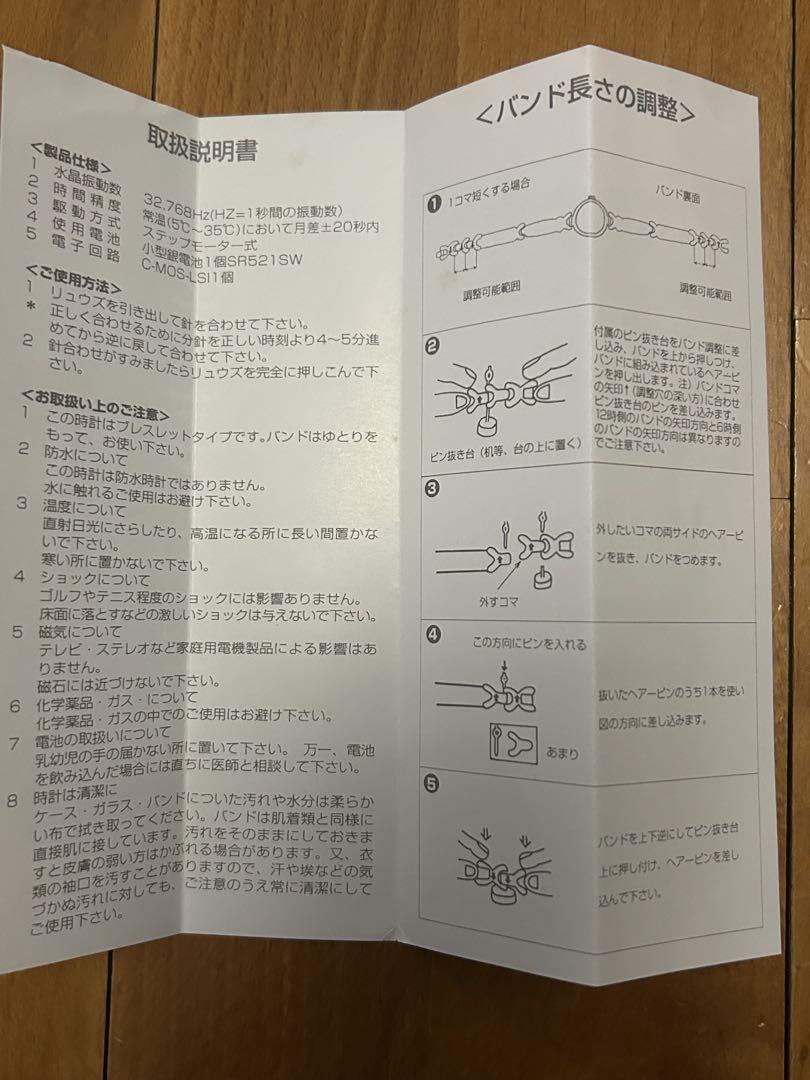 取扱説明書
<製品仕様>
1 水晶振動数 32.768Hz(HZ=1秒間の振動数)
2 時間精度 常温(5℃〜35℃)において月差±20秒内
3 駆動方式 ステップモーター式
4 使用電池 小型銀電池1個SR521SW
5 電子回路 C-MOS-LSI1個
<ご使用方法>
1 リュウズを引き出して針を合わせて下さい。
* 正しく合わせるために分針を正しい時刻より4〜5分進
めてから逆に戻して合わせて下さい。
2 針合わせがすみましたらリュウズを完全に押しこんで下
さい。
<お取扱い上のご注意>
1 この時計はブレスレットタイプです。バンドはゆとりを
もって、お使い下さい。
2 防水について
この時計は防水時計ではありません。
水に触れるご使用はお避け下さい。
3 温度について
直射日光にさらしたり、高温になる所に長い間置かな
いで下さい。
寒い所に置かないで下さい。
4 ショックについて
ゴルフやテニス程度のショックには影響ありません。
床面に落とすなどの激しいショックは与えないで下さい。
5 磁気について
テレビ・ステレオなど家庭用電機製品による影響はあ
りません。
磁石には近づけないで下さい。
6 化学薬品・ガス・について
化学薬品・ガスの中でのご使用はお避け下さい。
7 電池の取扱いについて
乳幼児の手の届かない所に置いて下さい。 万一、電池
を飲み込んだ場合には直ちに医師と相談して下さい。
8 時計は清潔に
ケース・ガラス・バンドについた汚れや水分は柔らか
い布で拭き取ってください。バンドは肌着類と同様に
直接肌に接しています。汚れをそのままにしておきま
すと皮膚の弱い方はかぶれる場合があります。又、衣
類の袖口を汚すことがありますので、汗や埃などの気
づかぬ汚れに対しても、ご注意のうえ常に清潔にして
ご使用下さい。
<バンド長さの調整>
❶ 1コマ短くする場合
バンド裏面
調整可能範囲
調整可能範囲
❷
付属のピン抜き台をバンド調整に差
し込み、バンドを上から押しつけ、
バンドに組み込まれているヘアーピ
ンを押し出します。注）バンドコマ
の矢印↑（調整穴の深い方）に合わせ
ピン抜き台のピンを差し込みます。
12時側のバンドの矢印方向と6時側
のバンドの矢印方向は異なりますの
でご注意下さい。
ピン抜き台（机等、台の上に置く）
❸
外したいコマの両サイドのヘアーピ
ンを抜き、バンドをつめます。
外すコマ
❹
この方向にピンを入れる
抜いたヘアーピンのうち1本を使い
図の方向に差し込みます。
あまり
❺
バンドを上下逆にしてピン抜き台
上に押し付け、ヘアーピンを差し
込んで下さい。